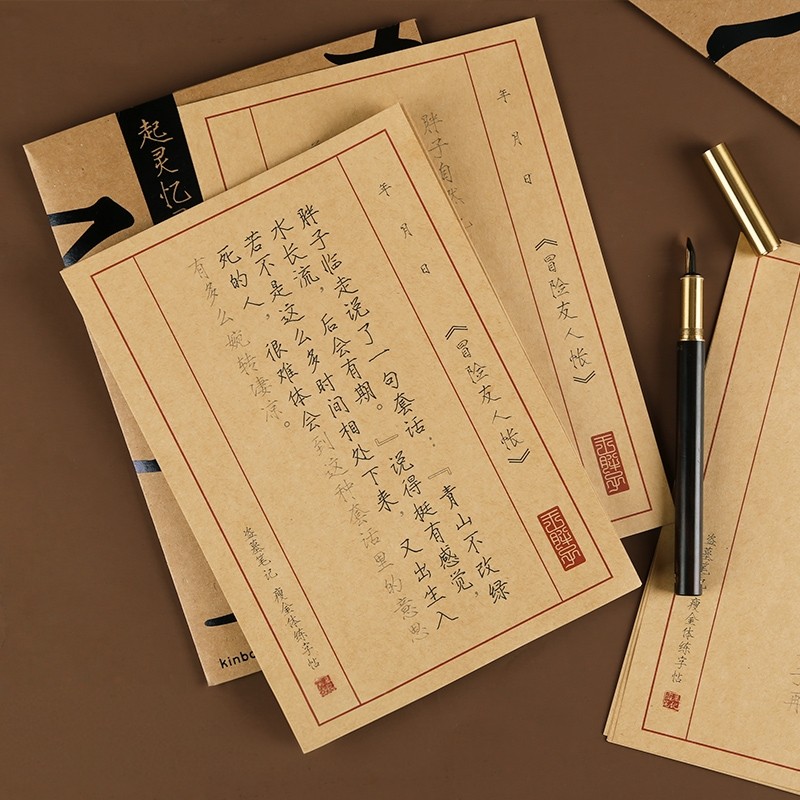 起灵忆
年 月 日
《冒险友人帐》
王胖子
胖子自然
年 月 日
《冒险友人帐》
王胖子
胖子临走说了一句套话：『青山不改绿
水长流，后会有期。』说得挺有感觉，
若不是这么多时间相处下来，又出生入
死的人，很难体会到这种套话里的意思
有多么婉转凄凉。
盗墓笔记 瘦金体练字帖
kinbo
盗墓笔记 瘦金体练字帖